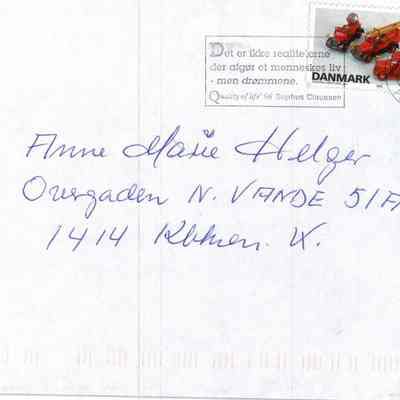 Det er ikke realiteterne
der afgør et menneskes liv
- men drømmene.
Quality of life '96 Sophus Claussen
DANMARK
Anne Marie Helger
Overgaden N. VANDE 51A
1414 Kbhvn. K.